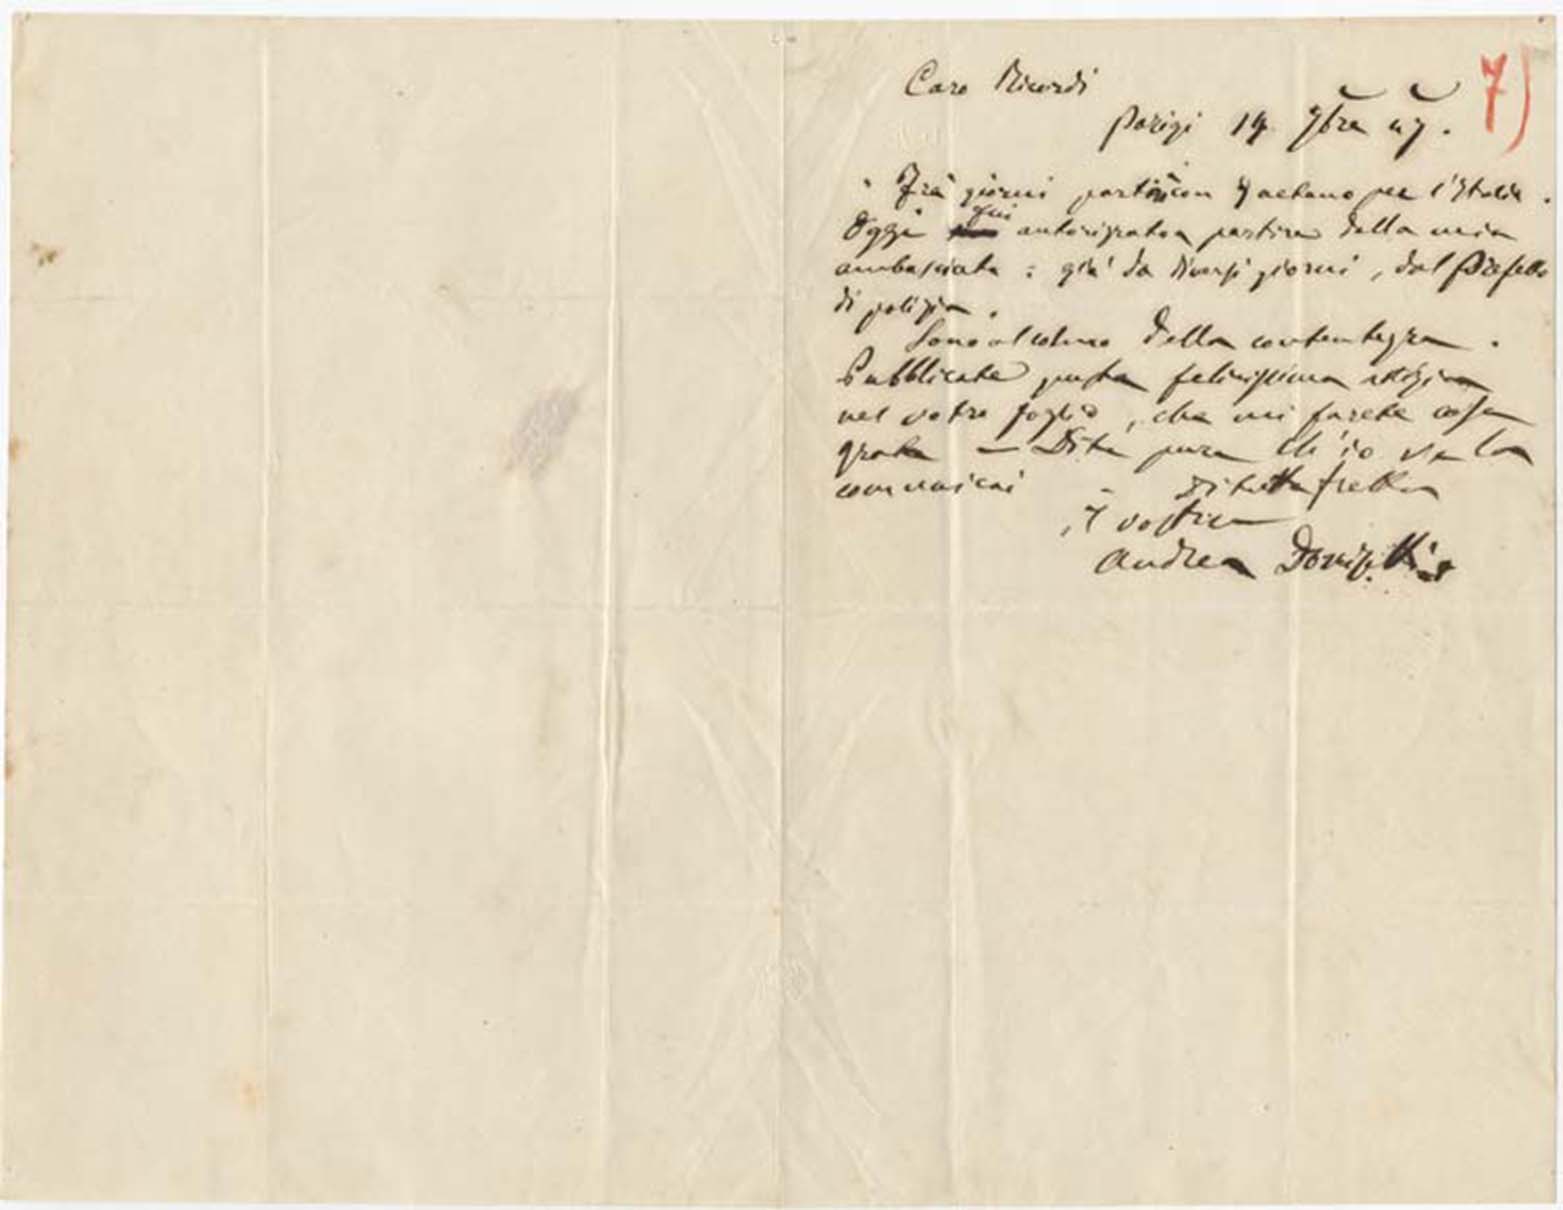 Caro Ricordi
7)
Parigi 19. 7bre 47.
Frà giorni partirò con Gaetano per l'Italia.
Oggi fui autorizzato a partire dalla mia
ambasciata: già da diversi giorni, dal Prefetto
di polizia.
Sono al colmo della contentezza.
Pubblicate questa felicissima notizia
nel vostro foglio, che mi farete cosa
grata — Dite pure ch'io ve la
comunicai
Di tutta fretta
il vostro
Andrea Donizetti